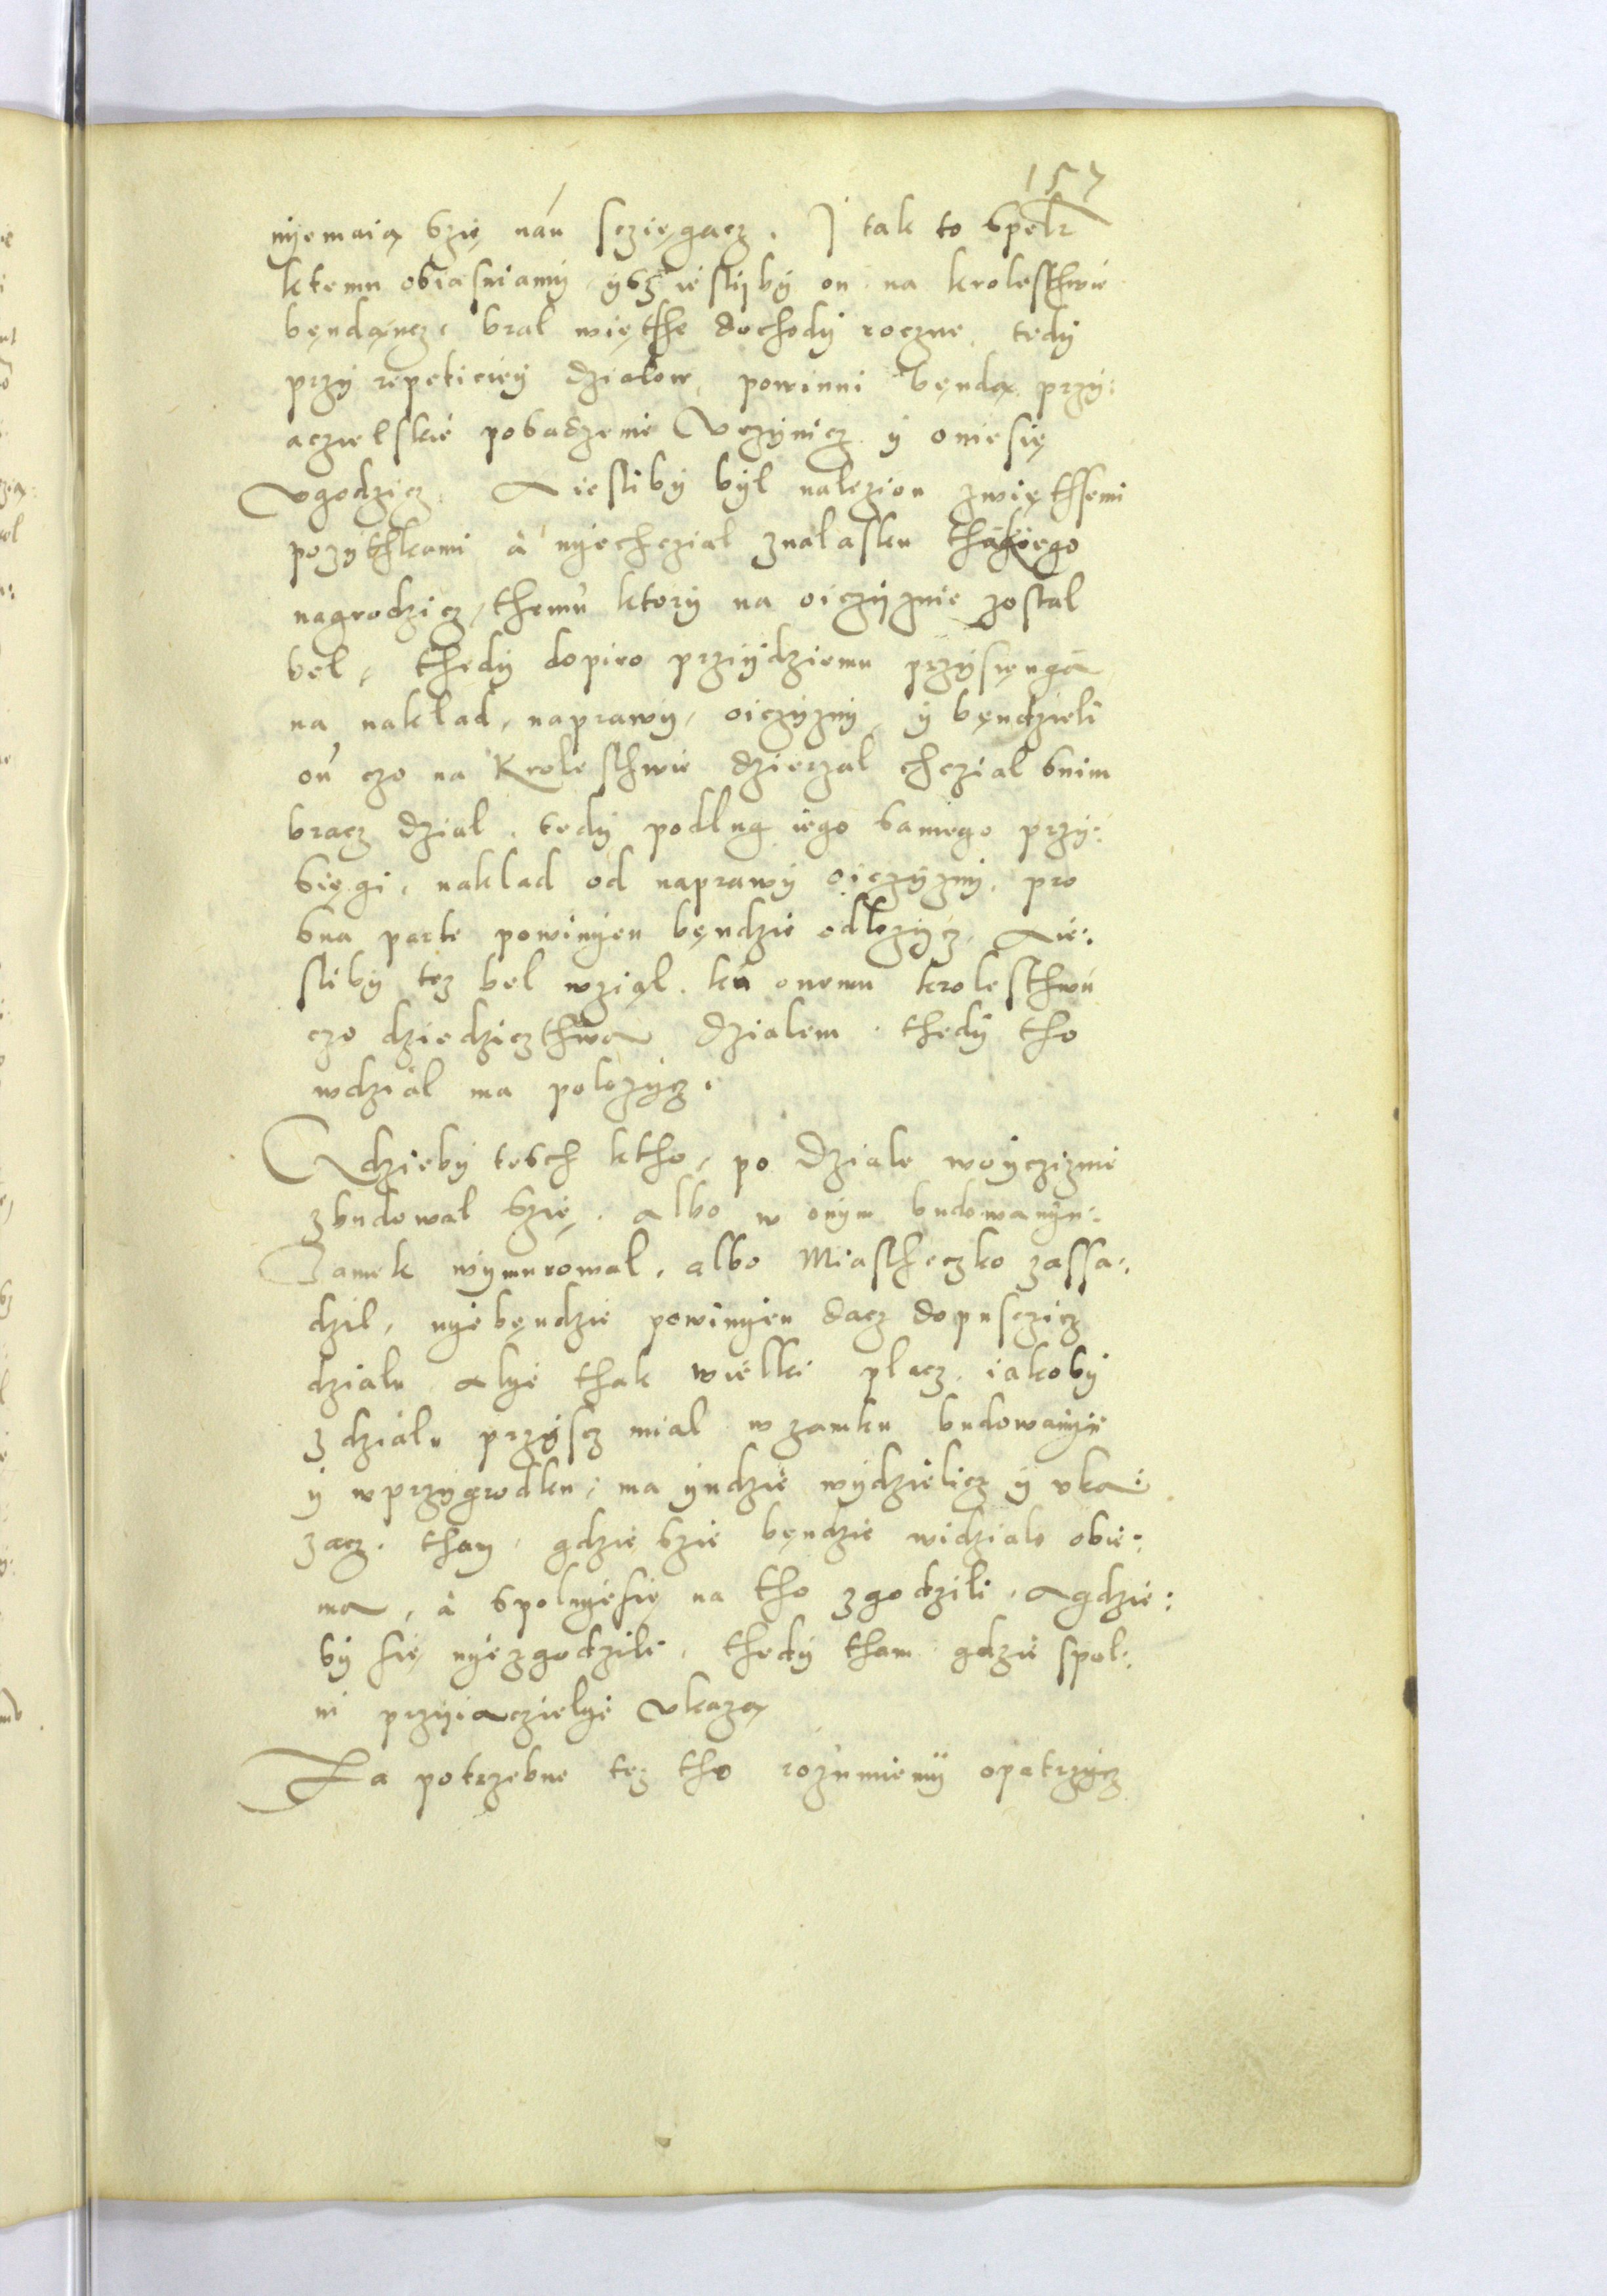 157
nyemaią szię nań sczięgacz. I tak to spelr
ktemu obiasniamy ysz iesliby on na krolesthwie
będąncz, bral więthe dochody roczne, tedy
przy repeticiey dzialow, powinni będą przy:
aczielskie posadzenie Vczynicz y oniesię
Vgodzicz. A iesliby był nalezion zwięthsemi
pozythkami à nyechczial znalasku thakiego
nagrodzicz, themu ktory na oiczyznie zostal
bel, thedy dopiro prziydziemu przysięngą
na naklad, naprawy, oiczyzny, y bęndzieli
on czo na Krolesthwie dzierzal chczial snim
bracz dzial, tedy podlug iego samego przy:
sięgi, naklad od naprawy oiczyzny, pro
sua parte powinyen bęndzie odlozycz, A ie:
sliby tez bel wziąl ku onemu krolesthwu
czo dziedzicthwa dzialem, thedy tho
wdzial ma polozycz.
Gdzieby tesch ktho, po dziale woycziznie
zbudowal szię, albo w onym budowanyu:
Zamek wymurowal, albo Miastheczko zassa:
dzil, nyebęndzie powinyen dacz dopusczicz
dzialu, alye thak wielki placz, iakoby
z dzialu przyscz mial w zamku budowanye
y wprzygrodku, ma yndzie wydzielicz y vka:
zacz. tham, gdzie szie bęndzie widzialo obie:
ma, à spolnyesię na tho zgodzili, Agdzie:
by sie nyezgodzili, thedy tham gdzie spol:
ni przyiaczielye Vkazą
Za potrzebne tez tho rozumiemy opatrzycz